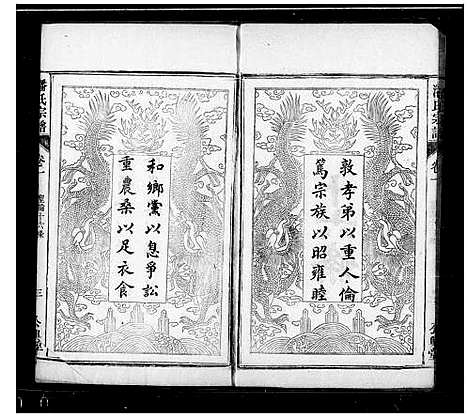 敦孝弟以重人倫
篤宗族以昭雍睦
和鄉黨以息爭訟
重農桑以足衣食
潘氏宗譜
卷一
三